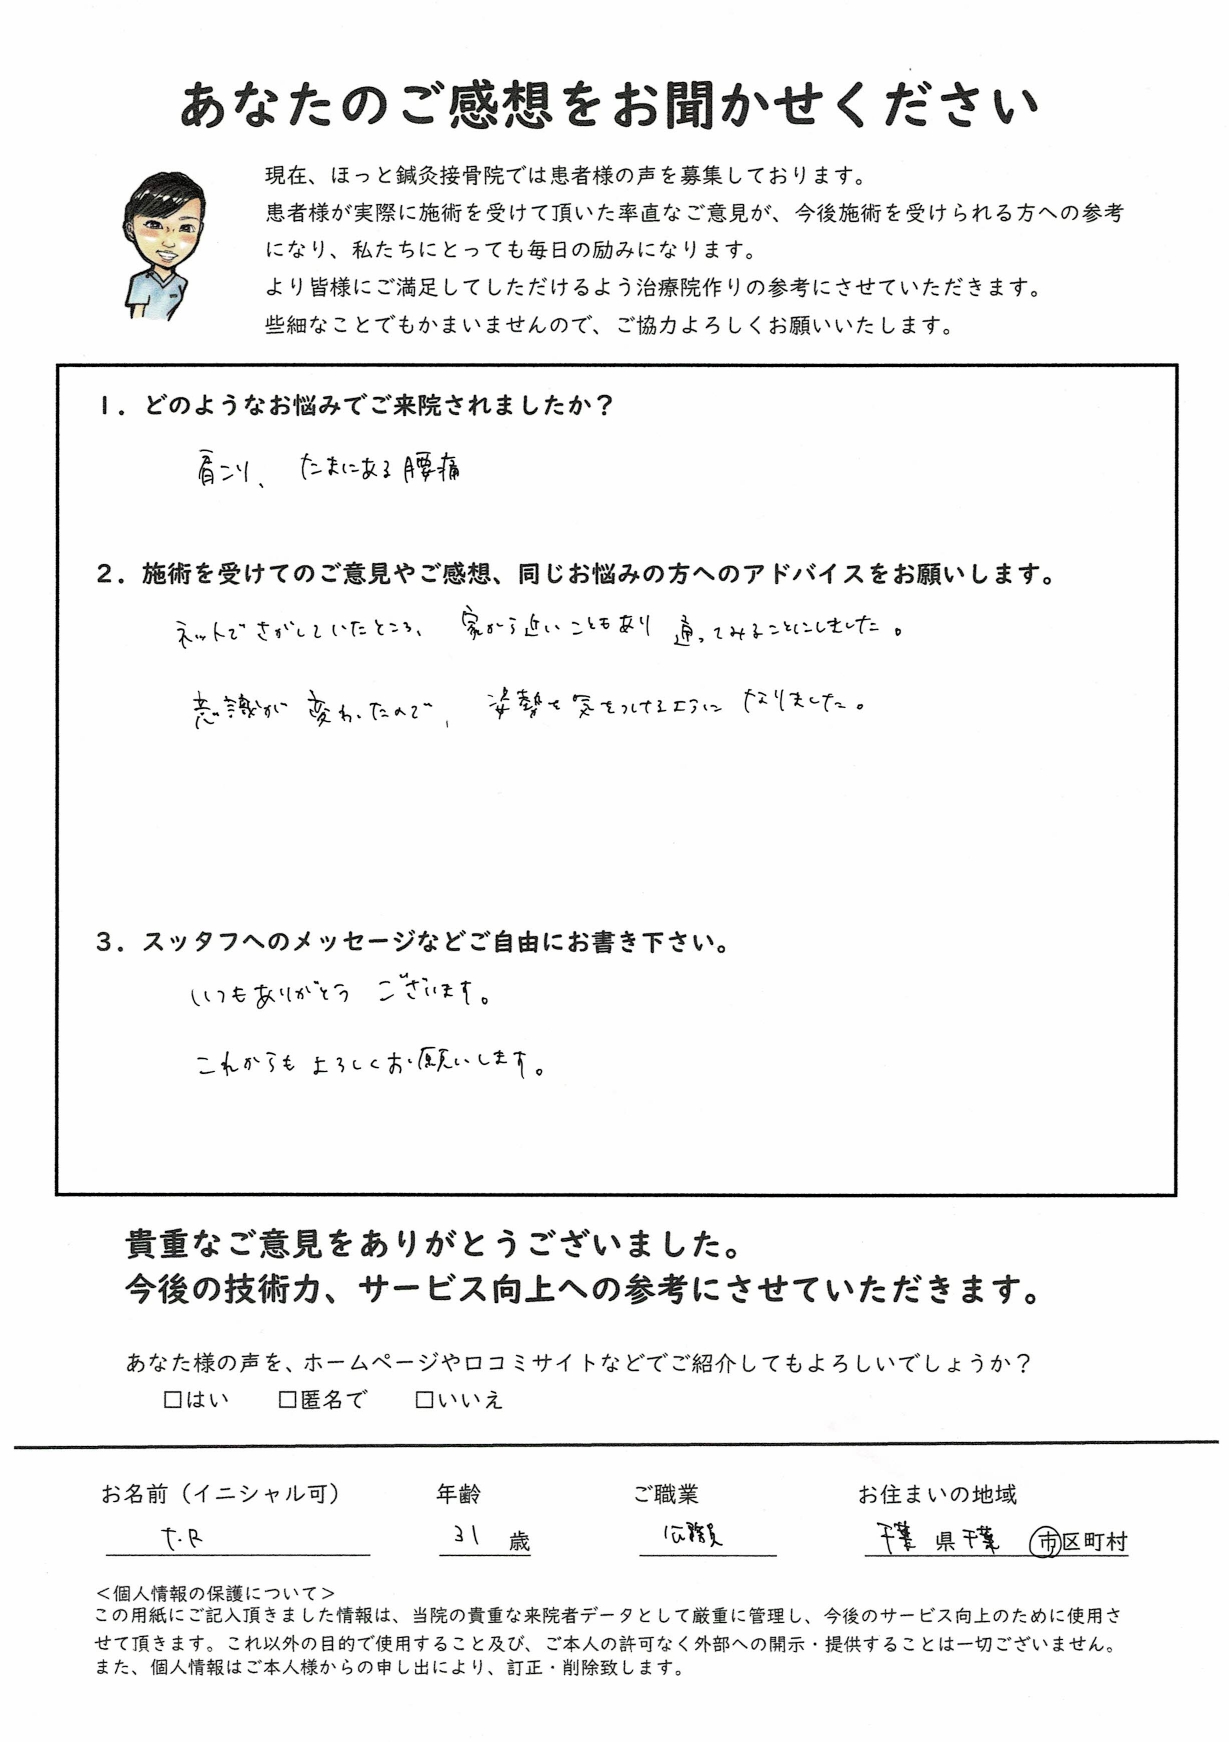 あなたのご感想をお聞かせください
現在、ほっと鍼灸接骨院では患者様の声を募集しております。
患者様が実際に施術を受けて頂いた率直なご意見が、今後施術を受けられる方への参考
になり、私たちにとっても毎日の励みになります。
より皆様にご満足してしただけるよう治療院作りの参考にさせていただきます。
些細なことでもかまいませんので、ご協力よろしくお願いいたします。
1．どのようなお悩みでご来院されましたか？
肩こり、 たまにある腰痛
2．施術を受けてのご意見やご感想、同じお悩みの方へのアドバイスをお願いします。
ネットでさがしていたところ、 家から近いこともあり 通ってみることにしました。
意識が 変わったので、 姿勢も気をつけるように なりました。
3．スッタフへのメッセージなどご自由にお書き下さい。
いつもありがとう ございます。
これからも よろしくお願いします。
貴重なご意見をありがとうございました。
今後の技術力、サービス向上への参考にさせていただきます。
あなた様の声を、ホームページや口コミサイトなどでご紹介してもよろしいでしょうか？
□はい □匿名で □いいえ
お名前（イニシャル可） 年齢 ご職業 お住まいの地域
T.R 31 歳 千葉 県 千葉 市区町村
＜個人情報の保護について＞
この用紙にご記入頂きました情報は、当院の貴重な来院者データとして厳重に管理し、今後のサービス向上のために使用さ
せて頂きます。これ以外の目的で使用すること及び、ご本人の許可なく外部への開示・提供することは一切ございません。
また、個人情報はご本人様からの申し出により、訂正・削除致します。